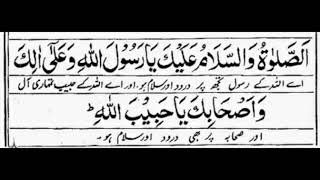 اَلصَّلٰوةُ وَالسَّلَامُ عَلَيْكَ يَارَسُوْلَ اللهِ وَعَلٰى اٰلِكَ
اے اللہ کے رسول تجھ پر درود اور سلام ہو۔ اور اے اللہ کے حبیب تمہاری آل
وَاَصْحَابِكَ يَا حَبِيْبَ اللهِ ؕ
اور صحابہ پر بھی درود اور سلام ہو۔